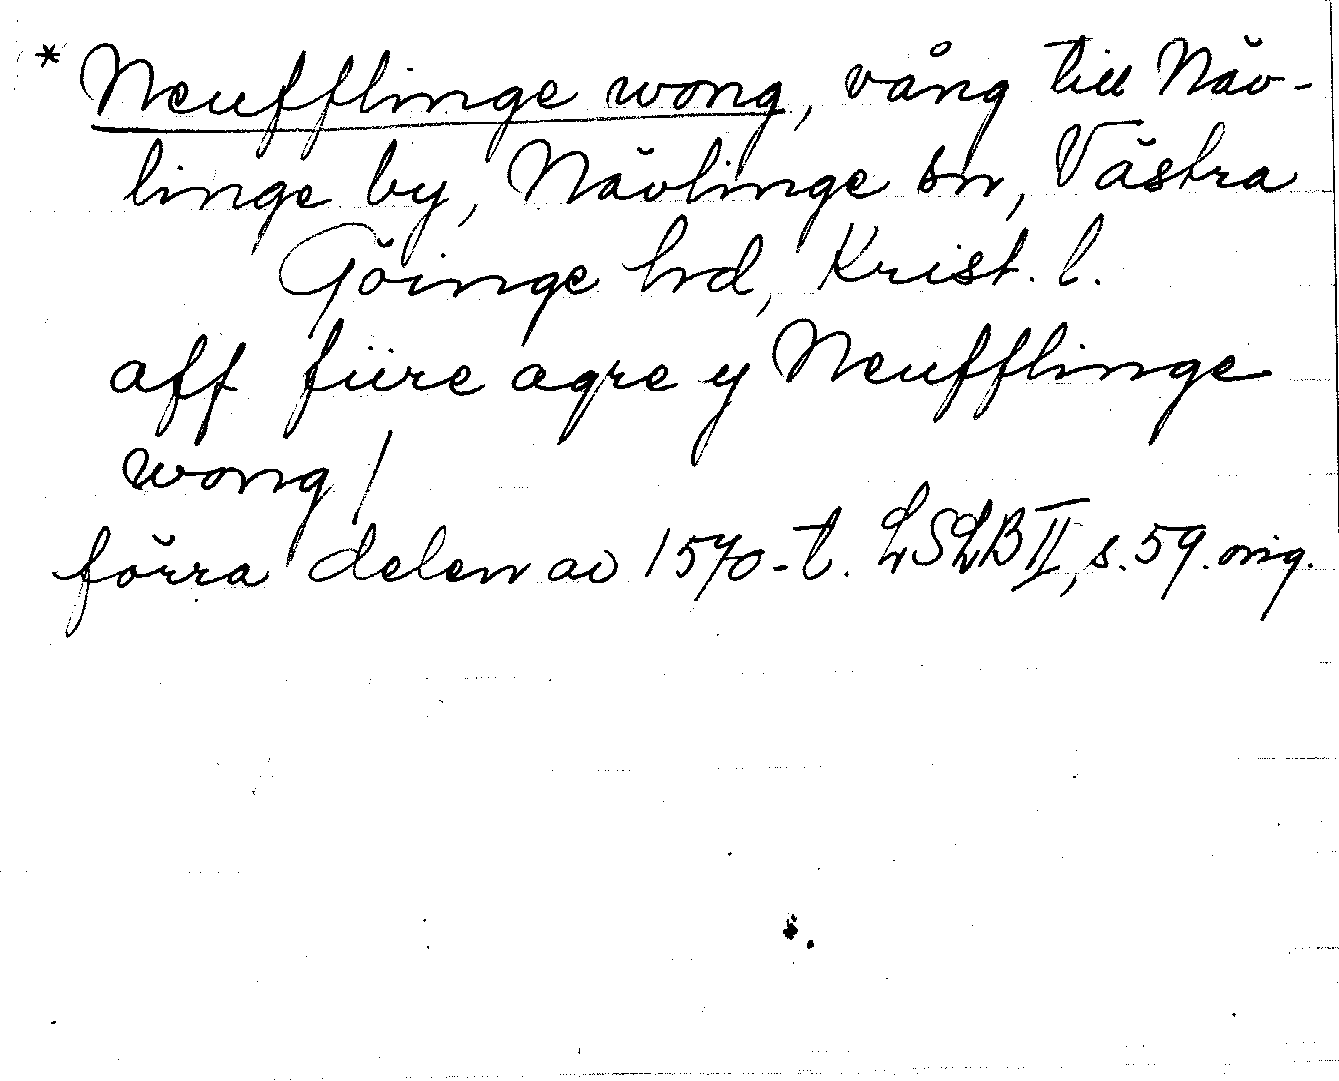 * Neufflinge wong, vång till Näv-
linge by, Nävlinge sn, Västra
Göinge hrd, Krist. l.
aff fiire agre y Neufflinge
wong/
förra delen av 1570-t. LSLB II, s. 59. orig.